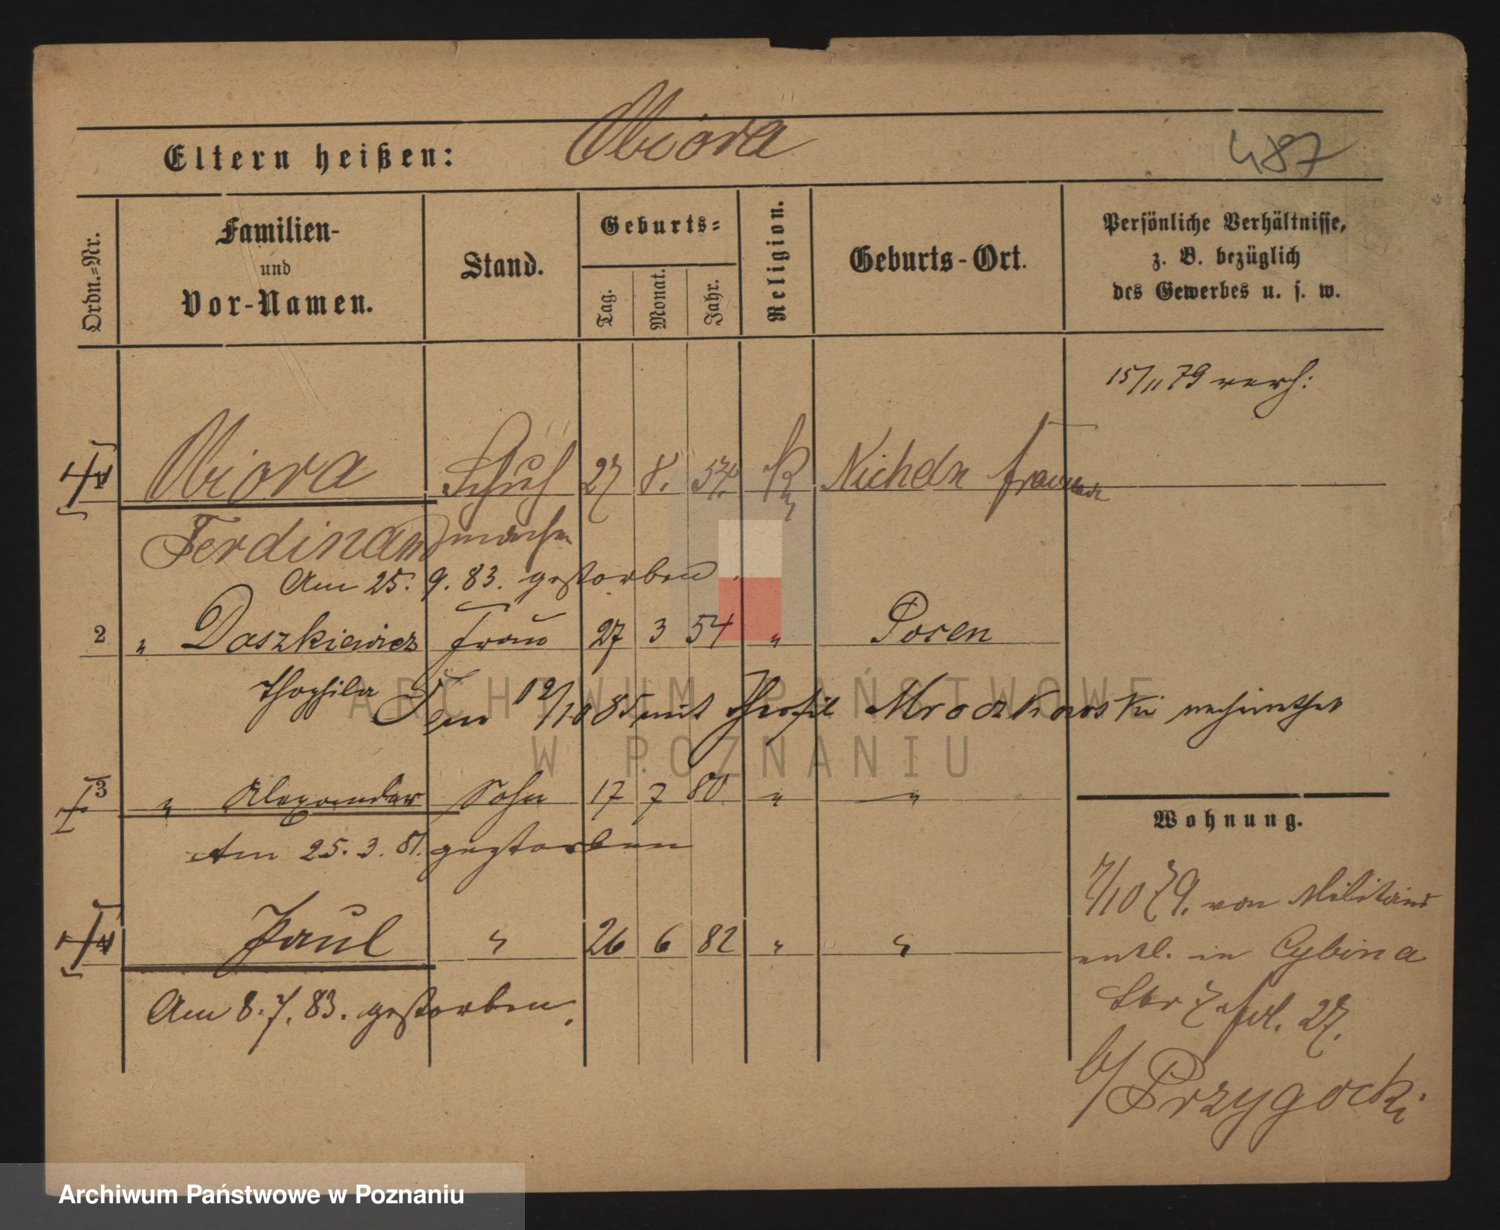 Eltern heißen: Wiora
487
Ordn.-Nr.
Familien-
und
Vor-Namen.
Stand.
Geburts-
Tag.
Monat.
Jahr.
Religion.
Geburts-Ort.
Persönliche Verhältnisse,
z. B. bezüglich
des Gewerbes u. s. w.
15/11 79 verh:
Wiora Schuh 27 8. 54. K
Ferdinand macher
Am 25. 9. 83. gestorben.
2 " Daszkiewicz Frau 27 3 54 " Posen
Theophila Am 19/10 85 mit Theofil Mroczkowski verheirathet
3 " Alexander Sohn 17 7 80 " "
Am 25. 3. 81. gestorben
Wohnung.
4 Paul " 26 6 82 " "
7/10 79. von Militair
entl. in Cybina
Am 8. 7. 83. gestorben.
27.
b/ Przygocki
ARCHIWUM PAŃSTWOWE
W POZNANIU
Archiwum Państwowe w Poznaniu